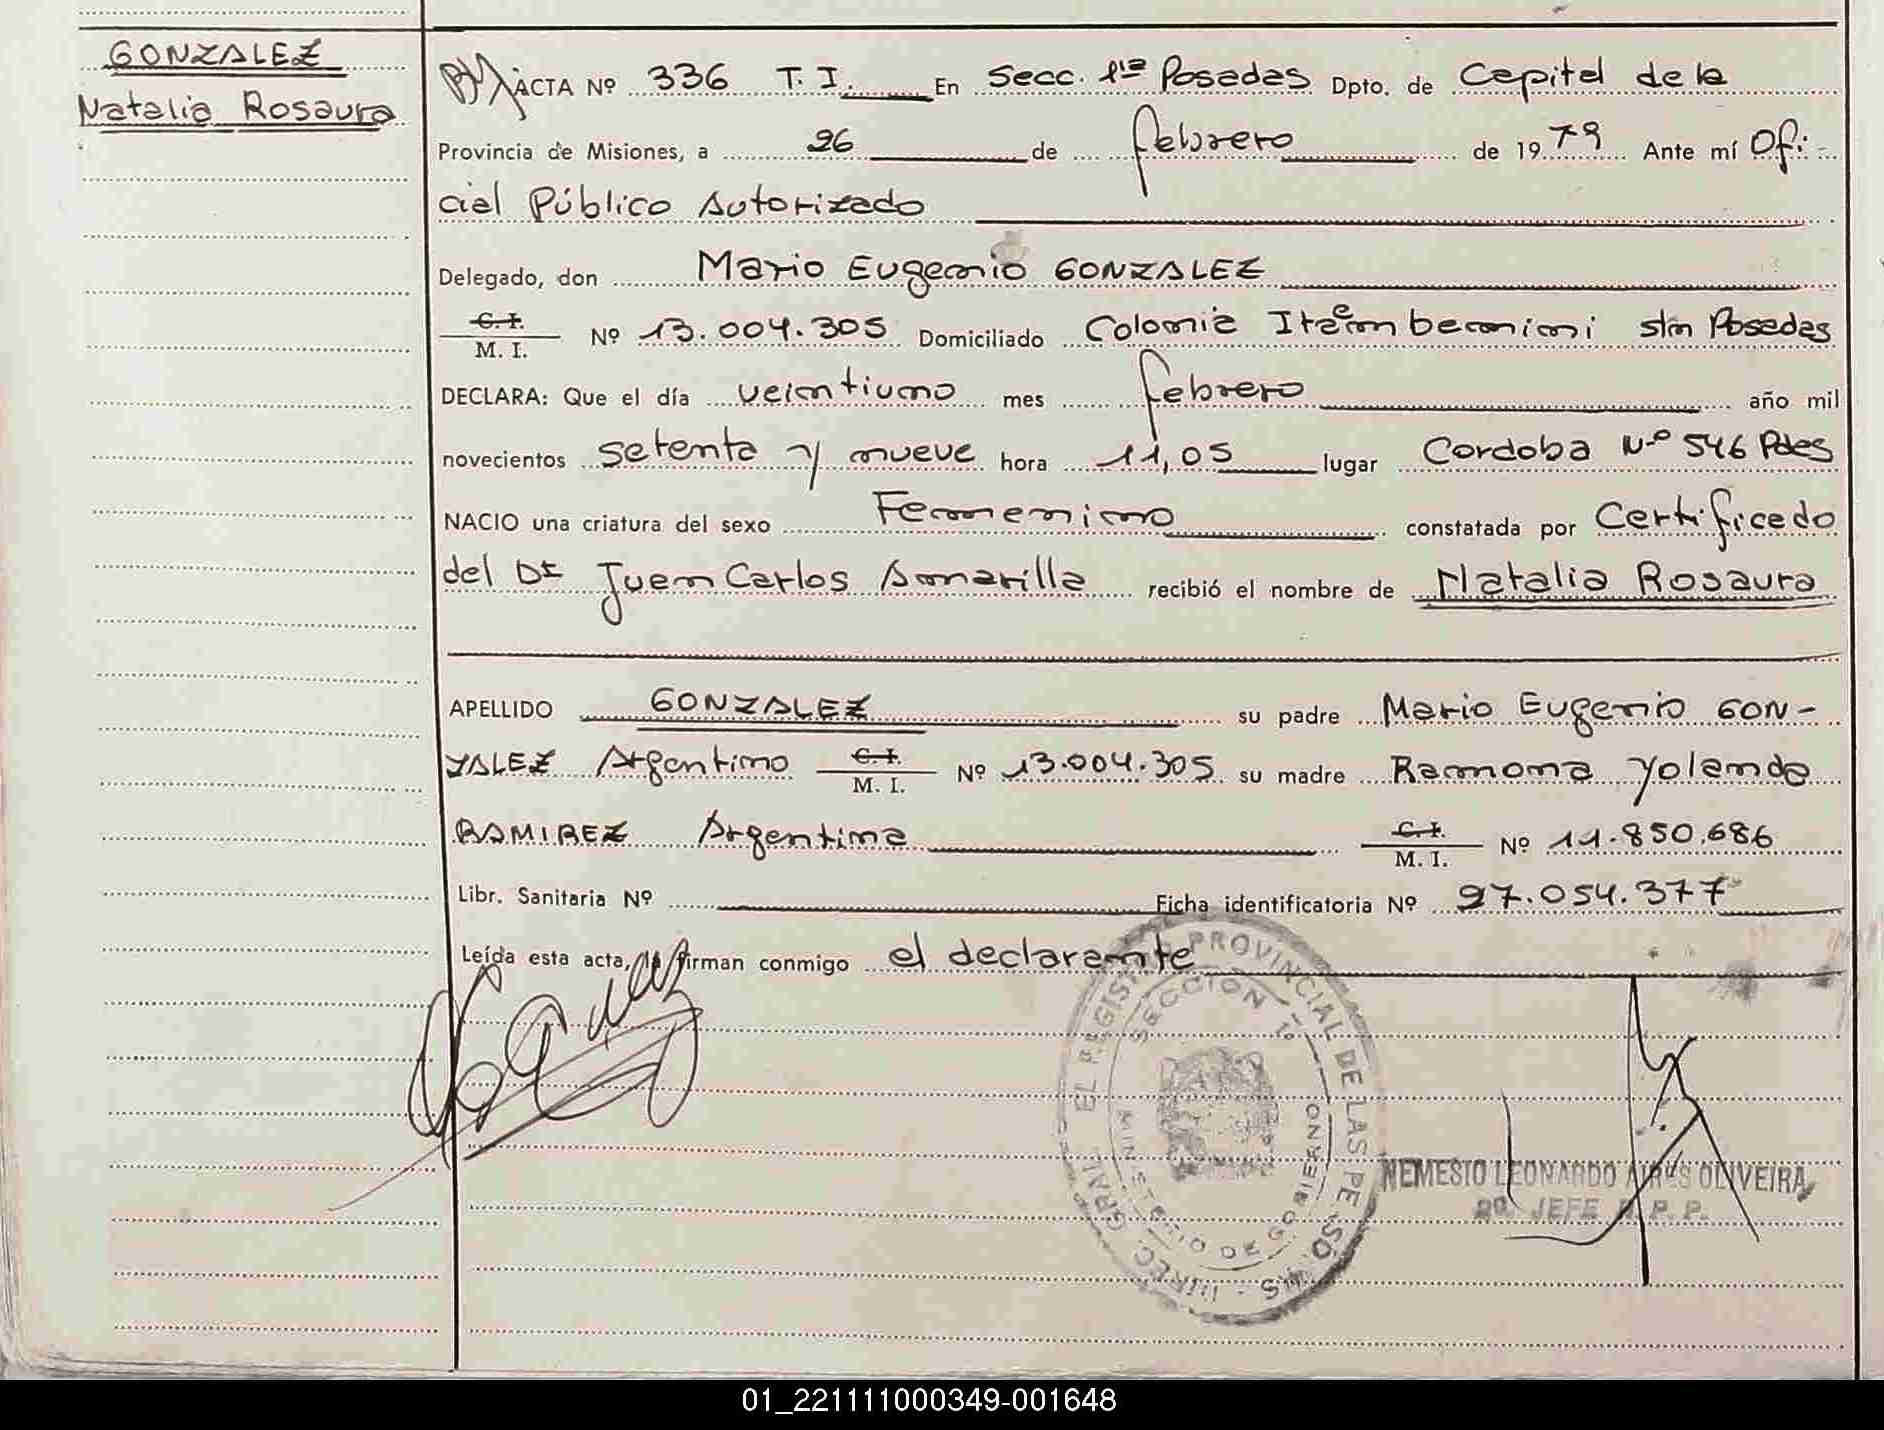 GONZALEZ
Natalia Rosaura
ACTA Nº 336 T. I. En Secc. 1ra Posadas Dpto. de Capital de la
Provincia de Misiones, a 26 de febrero de 1979 Ante mí Ofi-
cial Público Autorizado
Delegado, don Mario Eugenio GONZALEZ
C. I.
M. I. Nº 13.004.305 Domiciliado Colonia Itaembemini s/n Posadas
DECLARA: Que el día veintiuno mes febrero año mil
novecientos setenta y nueve hora 11,05 lugar Cordoba Nº 546 Pdas
NACIO una criatura del sexo Femenino constatada por Certificado
del Dr. Juan Carlos Amarilla recibió el nombre de Natalia Rosaura
APELLIDO GONZALEZ su padre Mario Eugenio GON-
ZALEZ Argentino C. I. M. I. Nº 13.004.305 su madre Ramona Yolanda
RAMIREZ Argentina C. I. M. I. Nº 11.850.686
Libr. Sanitaria Nº Ficha identificatoria Nº 27.054.377
Leída esta acta, la firman conmigo el declarante
DIREC. GRAL. EL REGISTRO PROVINCIAL DE LAS PERSONAS
SECCION 1º
MINISTERIO DE GOBIERNO
NEMESIO LEONARDO AIRES OLIVEIRA
2º JEFE R. P. P.
01_221111000349-001648